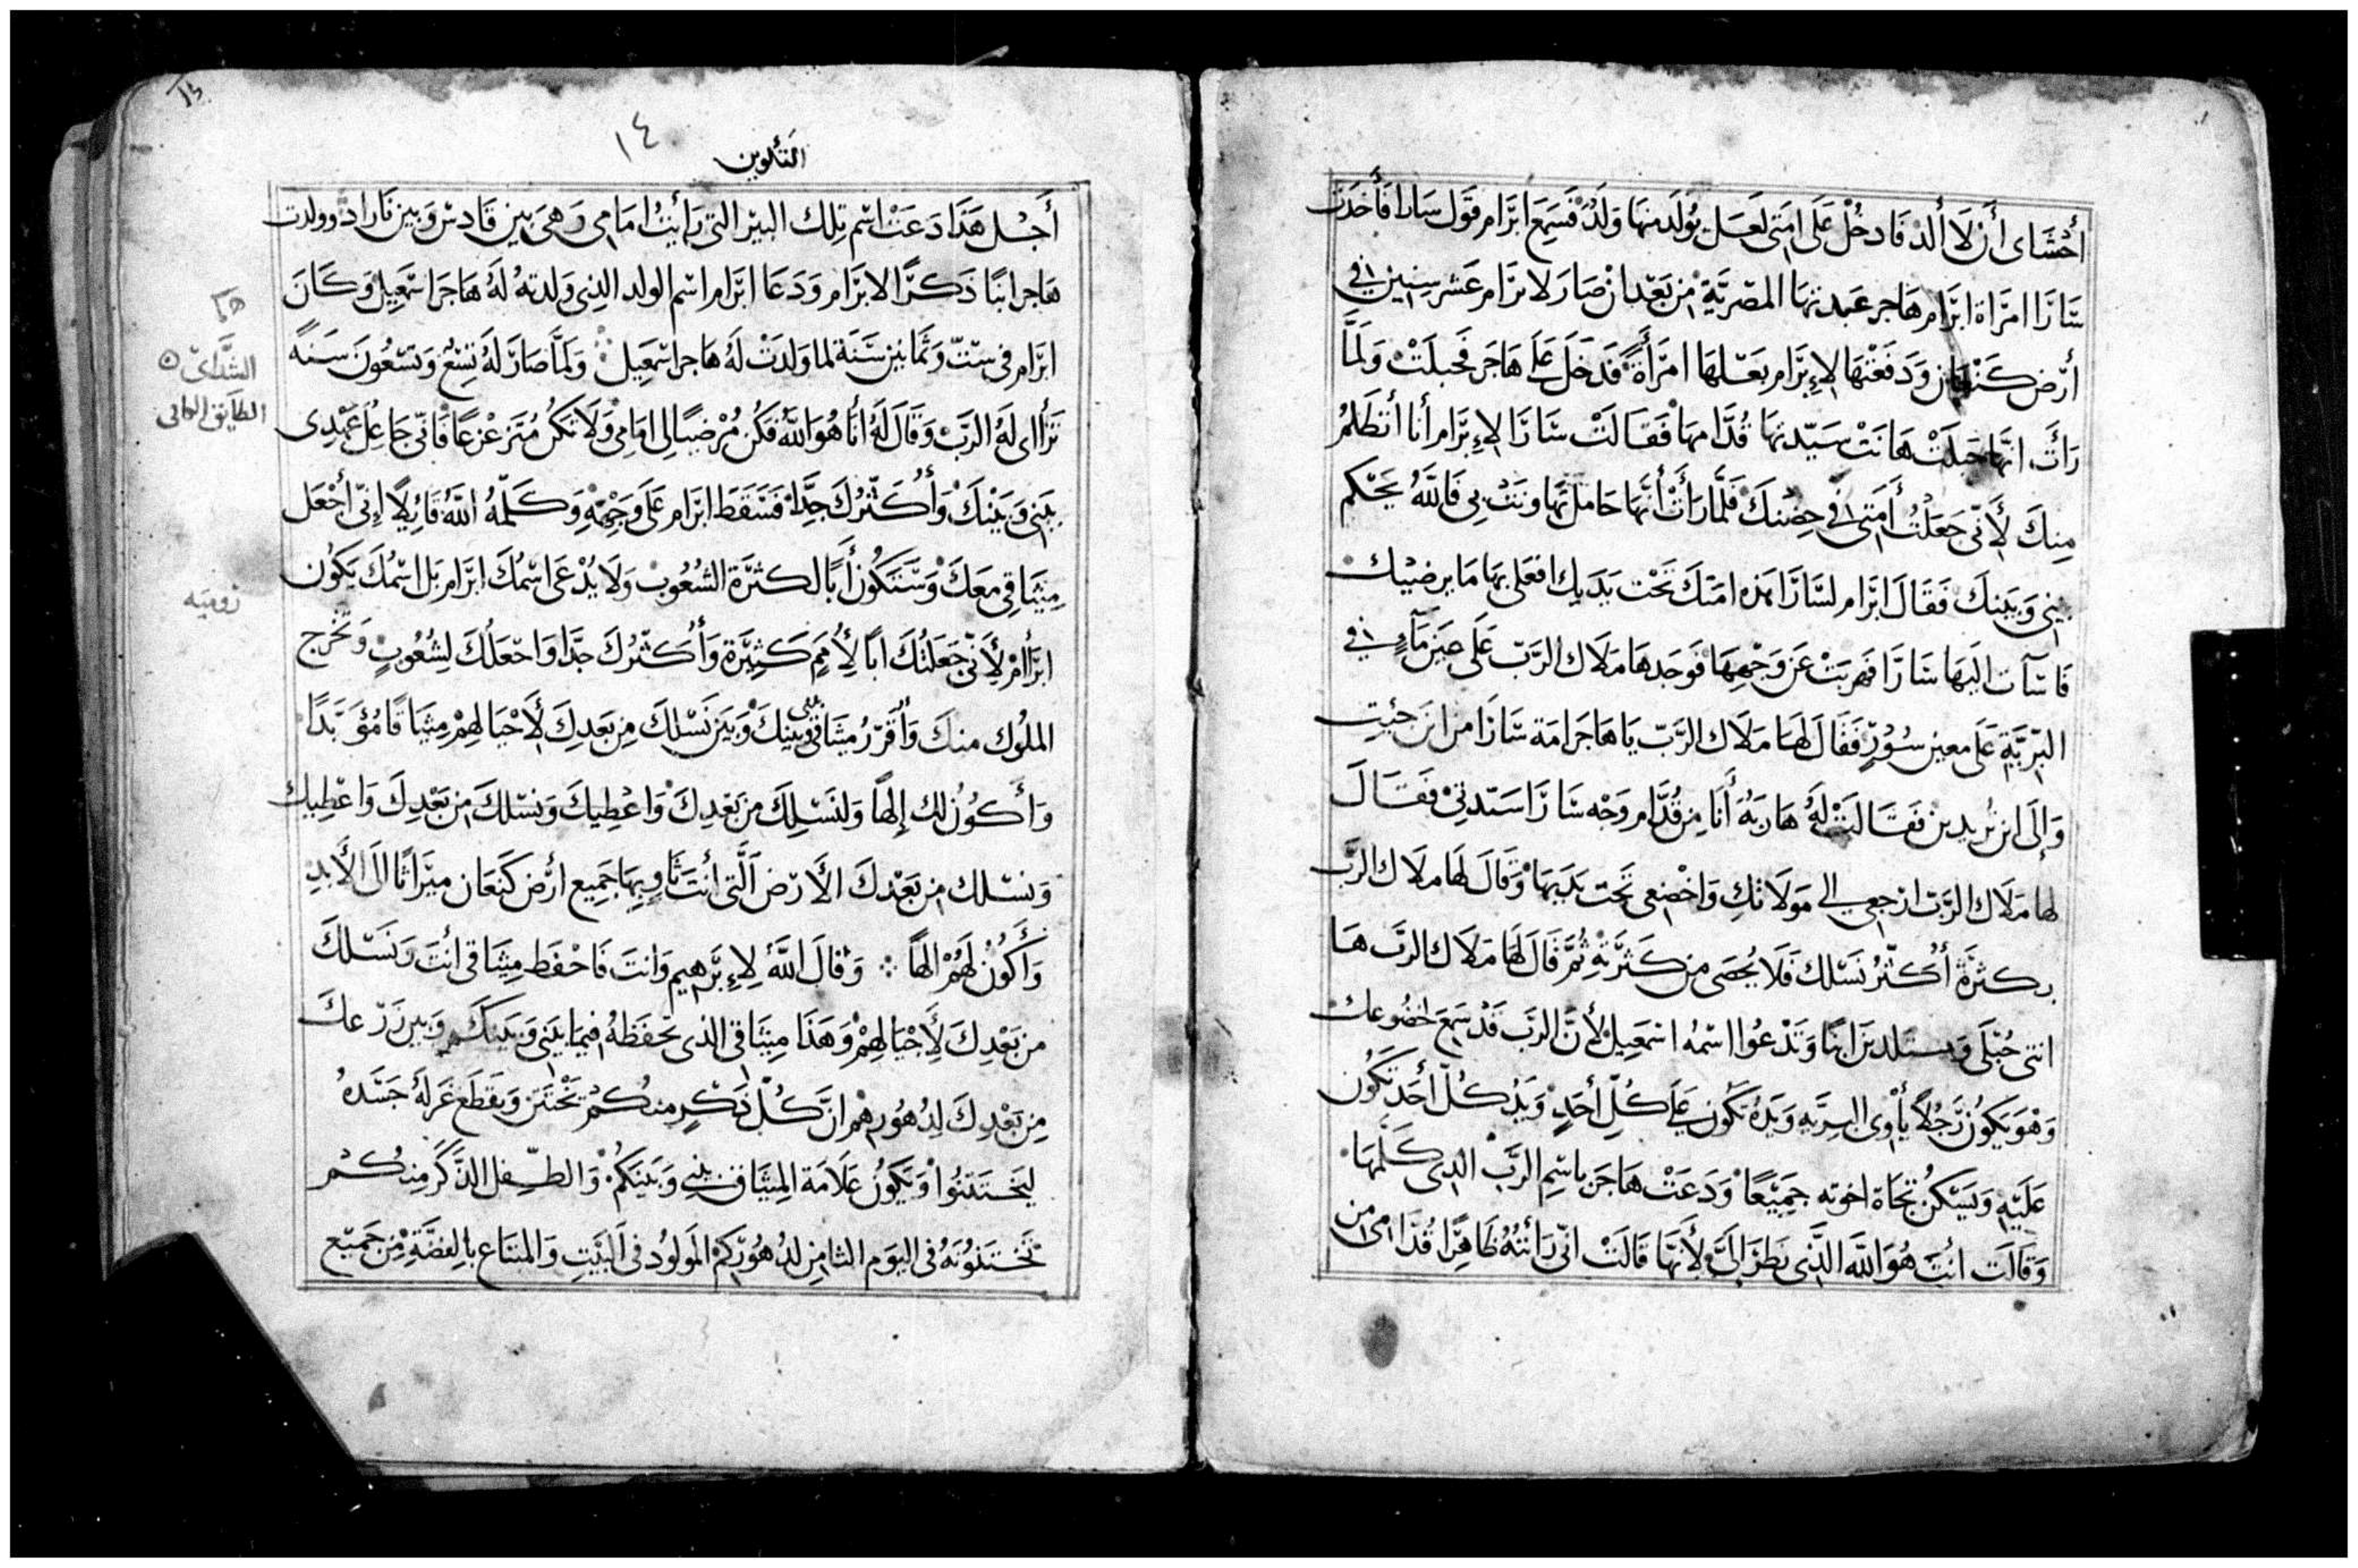 أحشاى أن لا ألد فادخل على امتى لعل يولد منها ولد فسمع ابرام قول سارا فأخذت
سَارَّا امرَاة ابرَّام هَاجر عبدتهَا المصريَّة من بَعد ان صَار لابرَام عَشر سنين في
أرض كنعان وَدَفعَتهَا لإِبرَّام بعَلهَا امرَأَةً فدَخَل عَلَى هَاجَر فحبلَتْ وَلمَّا
رَأَت انهَا حبلَتْ هَانَتْ سَيّدتهَا قُدَّامهَا فَقَالَتْ سَارَّا لإِبرَّام أنا أتظلمُ
مِنك لأَنّي جَعَلتُ أَمَتى في حِضنكَ فلَمَّا رَأَتْ أَنهَا حَامل تهَاونَتْ بي فَاللَّهُ يحكم
بيني وَبَينك فَقَالَ ابرَّام لسَارَّا هذه امَتك تحت يَدَيك افعَلى بهَا مَا يرضيك
فَاسآت اليهَا سَارَّا فهربَتْ عَن وَجْههَا فوَجَدهَا مَلاَك الرَّبّ عَلَى عين مَآءٍ في
البَرّيَّةِ عَلَى معين سُورٍ فَقَالَ لهَا مَلاَك الرَّبّ يَا هَاجَر امَة سَارَّا من اين جئتِ
وَإلَى اين تريدين فقَالَتْ لهُ هَاربَة أَنَا مِن قُدَّام وَجْه سَارَّا سَيّدتى فقَالَ
لها مَلاَك الرَّبّ ارجعي الى مَولاَتكِ وَاخْضعى تحَت يَدَيهَا وَقَالَ لهَا ملاَك الرَّب
بكثرَة أُكثّرُ نَسْلك فَلاَ يُحصَى مِن كَثرَتهِ ثُمَّ قَالَ لهَا مَلاَك الرَّب هَا
انتى حُبْلَى وَستلدين ابنًا وَتَدْعُوا اسْمهُ اسْمَعِيل لأَنَّ الرَّب قَدْ سَمعَ خضُوعك
وَهْوَ يَكُونُ رَجُلاً يأْوِى البريَّه وَيَدُهُ تَكُون عَلَى كُلّ أَحَدٍ وَيَدُ كُلّ أَحَد تكُون
عَلَيْهِ وَيَسْكنُ تجَاة اخوته جَمِيْعًا وَدَعَتْ هَاجَر باسْم الرَّبّ الذِى كَلّمهَا
وَقَالَت أنت هُوَ اللَّه الَّذِى نظر إلَىَّ لأَنهَا قَالَتْ انّى رَأَيْتُهُ ظَاهِرًا قُدَّامى من
١٤
التكوين
أَجْل هَذَا دَعَتْ اسْم تِلك البير التي رَأيتُ امَامى وَهى بَين قَادسْ وَبين فَاراد وولدت
هَاجر ابنًا ذَكرًا لابرَام وَدَعَا ابرَام اسْم الولد الذِى وَلدتهُ لَهُ هَاجَر اسْمَعِيل وَكَانَ
ابرَام فى سِتّ وَثمَانين سَنَة لما ولدَتْ لهُ هَاجر اسْمَعِيل وَلمَّا صَارَ لهُ تِسْع وَتسْعُونَ سَنَةً
ترَأاى لهُ الرَّبّ وَقَالَ لَهُ أنَا هُوَ اللَّه فكن مُرْضيًا لى امَامى وَلاَ تكن مُتزعْزعًا فَانّى جَاعِلُ عَهْدِى
بَيْنى وَبَيْنكَ وَأُكَثّرُكَ جدًّا فسَقَط ابرَام عَلَى وَجْههِ وَكَلّمهُ اللَّهُ قَائِلاً إنّى أَجْعَل
مِيثَاقى مَعَكَ وَسَتَكُونُ أَبًا لكثرَة الشعُوب وَلاَ يُدْعَى اسْمُكَ ابرَام بَل اسْمُكَ يَكُون
ابرَأام لأَنّى جَعَلتُكَ ابًا لأُمَمٍ كَثِيرَة وَأُكَثّرُكَ جدًّا وَاجْعَلُكَ لِشُعُوبٍ وَتخْرج
الملُوك منكَ وَأُقَرّرُ ميثَاقى بينى وَبينكَ وَبَين نَسْلكَ مِن بَعدِكَ لأَجْيَالهِمْ مِيثَاقًا مُؤَبَّدًا
وَأَكُونُ لك إلهًا وَلنَسْلِكَ مِن بَعْدِكَ وَاعْطِيكَ وَنسْلكَ مِن بَعْدِكَ وَاعْطِيك
وَنسْلك مِن بَعْدكَ الأَرْض الَّتى أنتَ ثَاوٍ بِهَا جَمِيع أرْض كَنعَان ميرَاثًا الَى الأَبدِ
وَأَكُونُ لَهُمْ الهًا وَقَالَ اللَّهُ لإِبْرَهِيم وَانتَ فَاحْفَظ مِيثَاقى أنتَ وَنَسْلكَ
من بَعْدِكَ لأَجْيَالهِمْ وَهَذَا مِيثَاقى الذى تحفَظهُ فيمَا بَينى وَبَينَكُم وَبين زَرْعكَ
مِن بَعْدِكَ لِدُهُورِهْم انَّ كُلّ ذَكَرٍ منكُمْ تخْتَتن وَيقَطَع غَرلةُ جَسَدهُ
ليَختَتنُوا وَيَكُونُ عَلاَمَة المِيثَاق بينى وَبَينَكُمْ وَالطِفل الذَّكَر مِنكُمْ
تَخْتنُونَهُ فى اليوَم الثامِن لدُهُورَكُم المَولوُد فى البَيْتِ وَالمبتَاع بالِفضَّةِ مِن جَمِيع
هكا
الشدَّاىّ
روميه